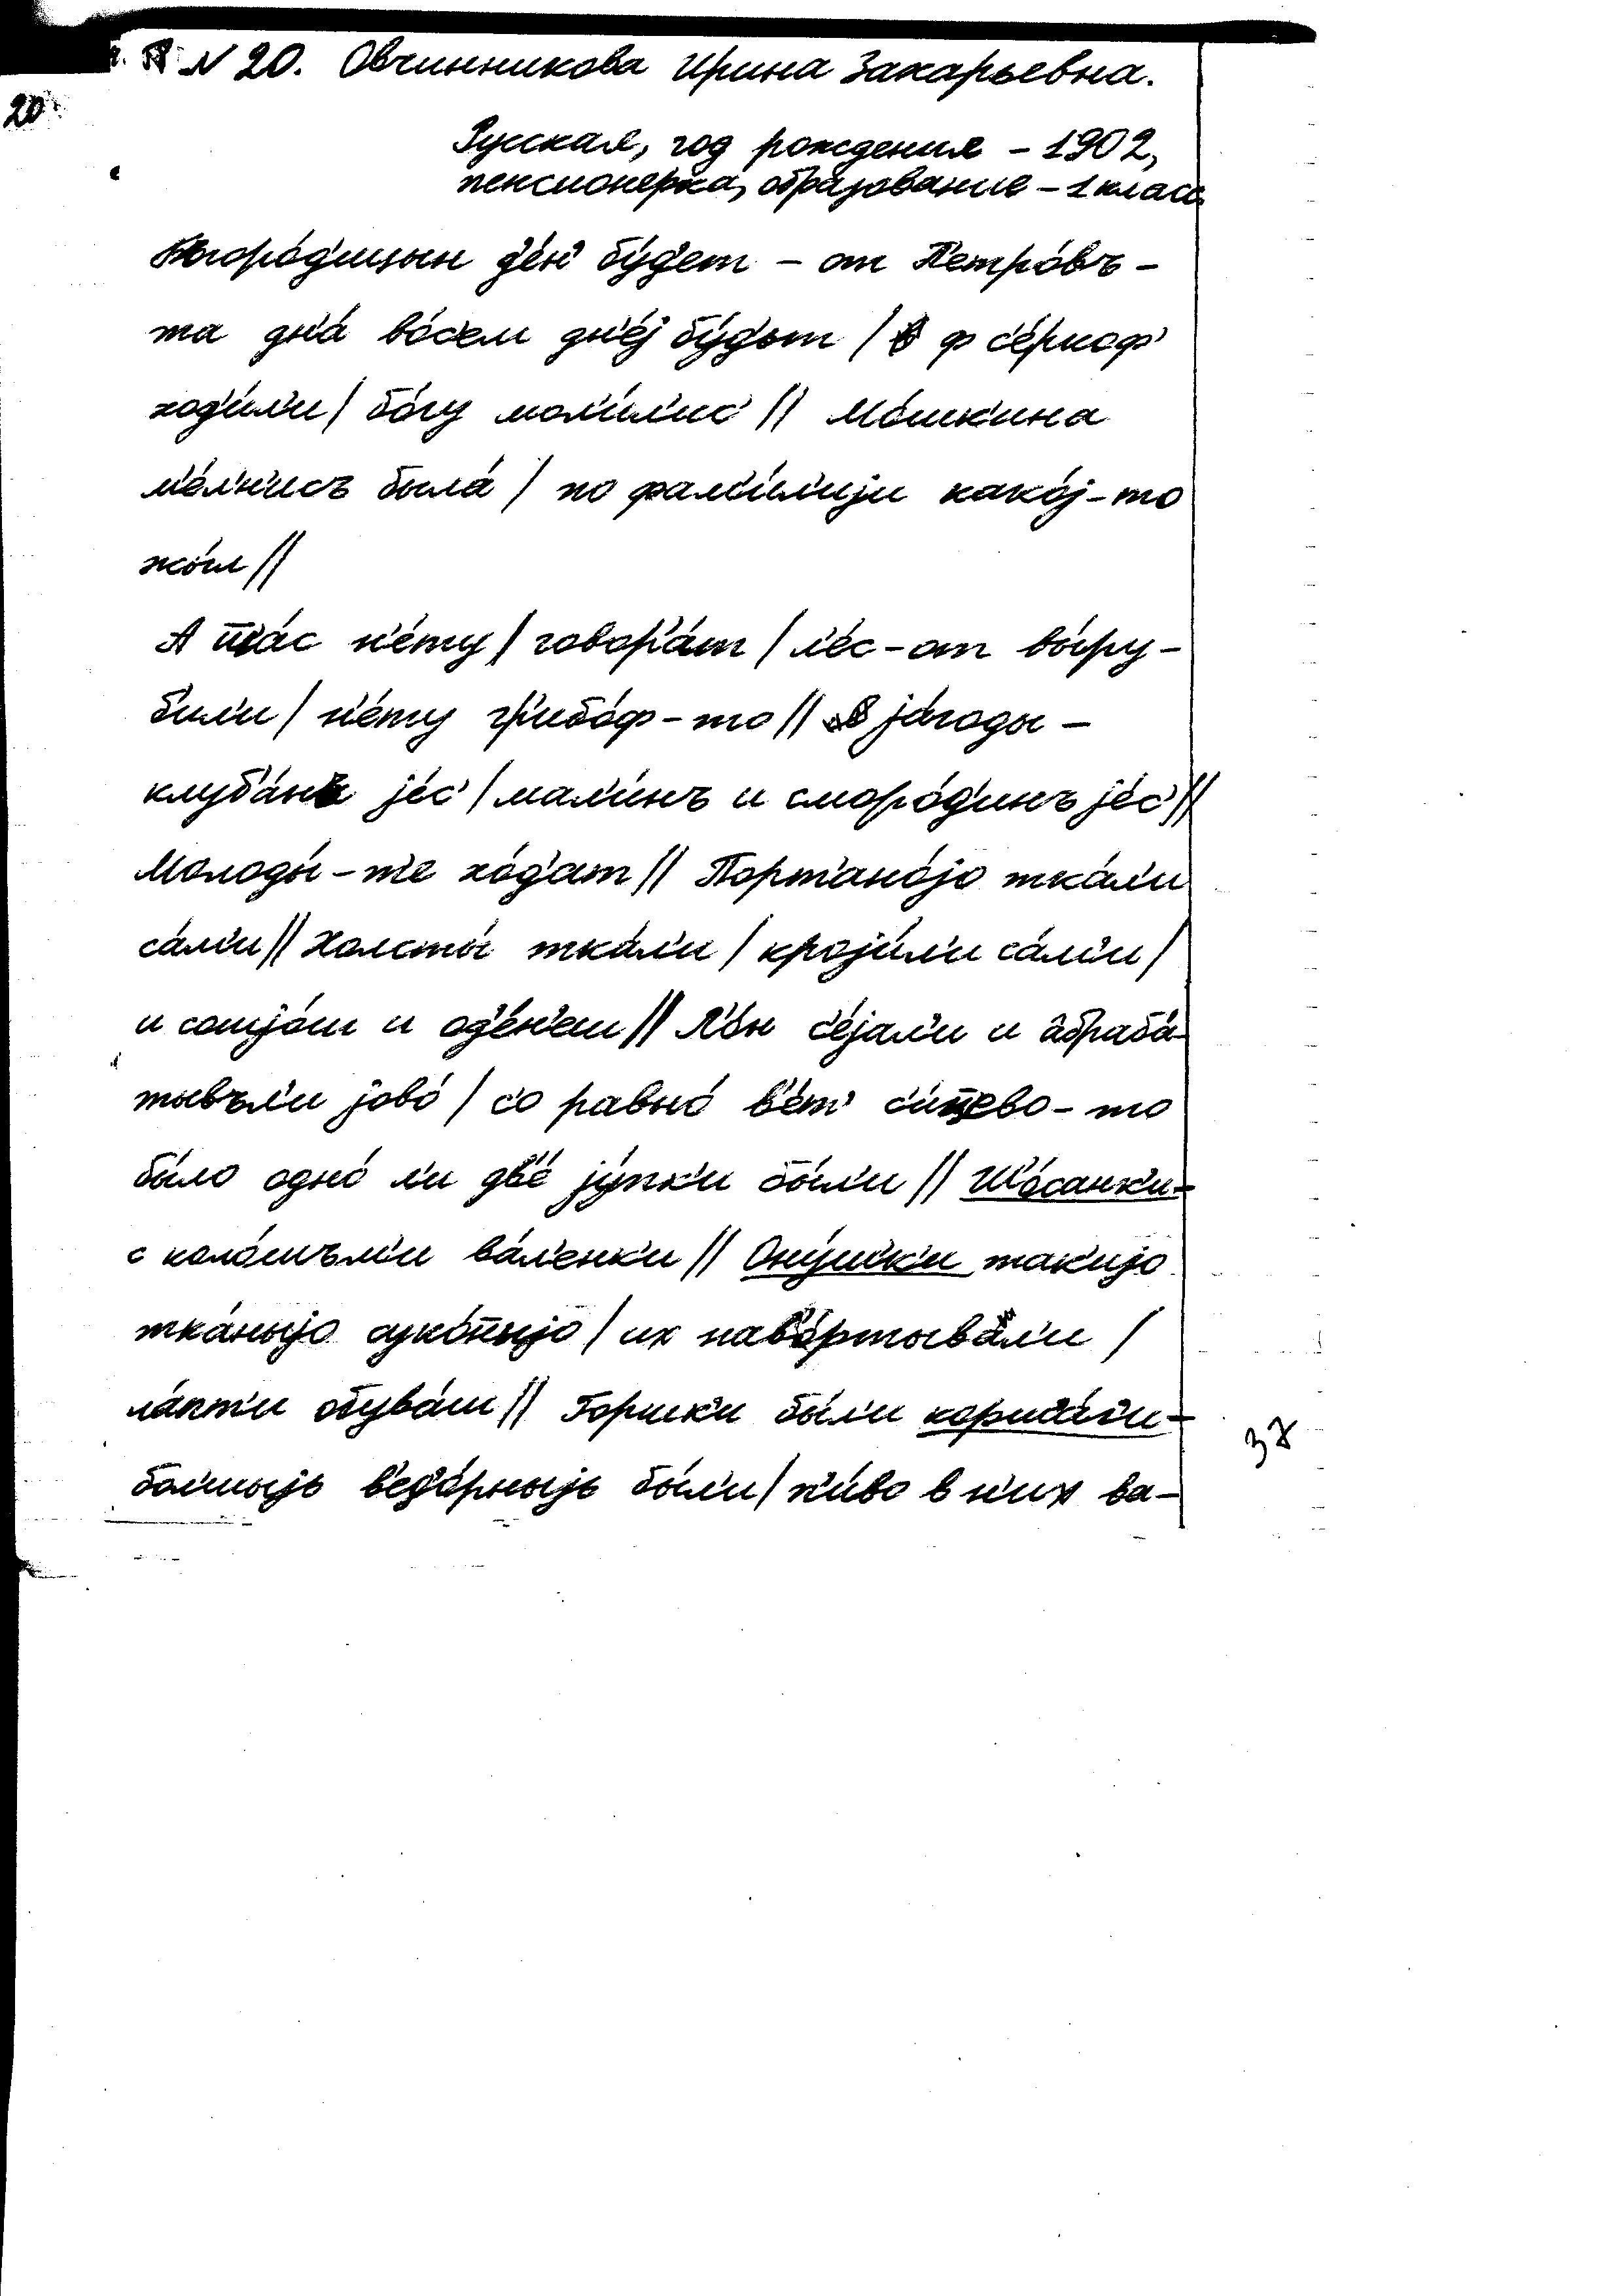 N 20. Овчинникова Ирина Захарьевна.
20
Русская, год рождения – 1902,
пенсионерка, образование – 1 класс
д'е́н' бу́д'ет – от П'етро́въ –
та дн'а́ во́с'ем дн'е́j бу́дът / ф с'е́ркоф'
ход'и́л'и / бо́гу мол'и́л'ис' // Мо́шк'ина
м'е́л'н'исъ была́ / по фам'и́л'иjи како́j-то
жы́л //
А н'е́ту / говор'а́т / л'е́с-от вы́ру –
б'ил'и / н'е́ту гр'ибо́ф-то // jа́годы –
jе́с' / мал'и́нъ и сморо́д'инъ jе́с' //
Молоды́-т'е хо́д'ат // Порт'ано́jо тка́л'и
са́м'и // Холсты́ тка́л'и / кроjи́л'и са́м'и /
и сошjо́ш и од'е́н'еш // Л'о́н с'е́jал'и и абраба́ –
тывъл'и jово́ / с'о равно́ в'е́т' с'и́цево-то
бы́ло одно́ л'и дв'е́ jу́пк'и бы́л'и // Ш'о́санк'и –
с коло́шъм'и ва́л'енк'и // Ону́ш'к'и так'иjо
тка́ныjо / их нав'о́ртывал'и /
ла́пт'и обува́ш // Горшк'и бы́л'и корча́г'и –
бол'шыjь в'ед'о́рныjь бы́л'и / п'и́во в н'их ва –
37